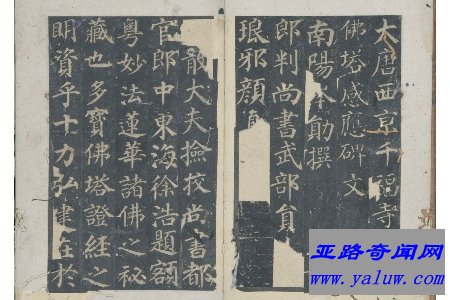 大唐西京千福寺
佛塔感應碑文
南陽岑勛撰
郎判尚書武部員
琅邪顏
散大夫撿挍尚書都
官郎中東海徐浩題額
粵妙法蓮華諸佛之秘
藏也多寶佛塔證經之
明資乎十力弘建在於
亚路奇闻网
www.yaluw.com